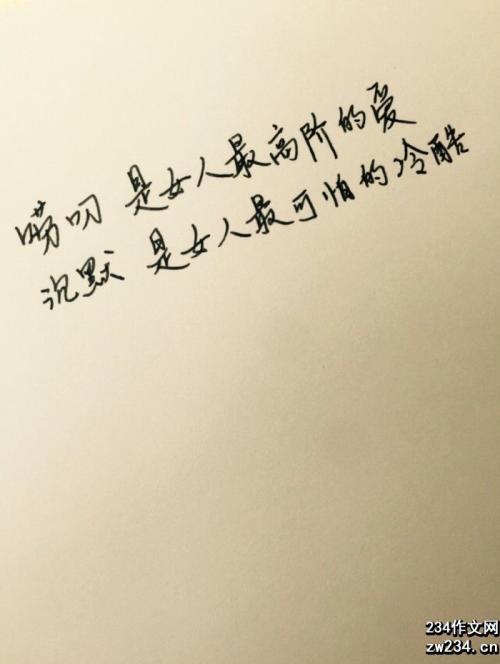 唠叨 是女人最高阶的爱
沉默 是女人最可怕的冷酷
234作文网
zw234.cn